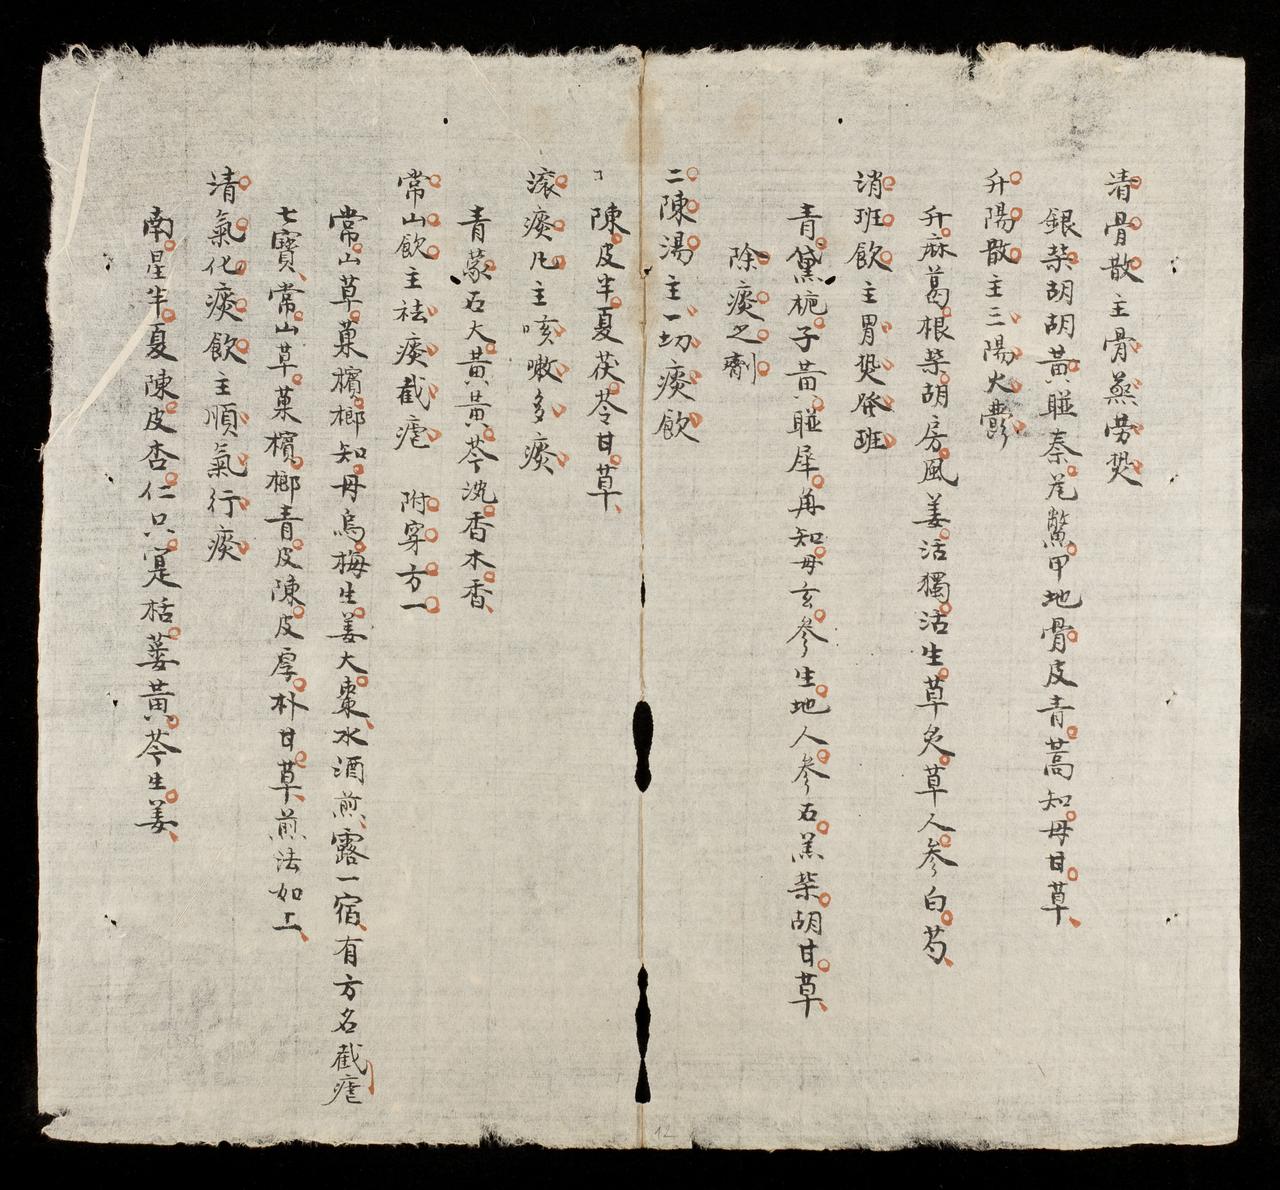 清骨散主骨蒸劳㷫
銀柴胡胡黄聠秦艽鱉甲地骨皮青蒿知母甘草
升陽散主三陽火鬱
升麻葛根柴胡房風姜活獨活生草炙草人參白芍
消班飲主胃㷫發班
青黛栀子黄聠犀角知母玄參生地人參石羔柴胡甘草
除痰之劑
二陳湯主一切痰飲
陳皮半夏茯苓甘草
滚痰凡主咳嗽多痰
青蒙石大黄黄芩沈香木香
常山飲主祛痰截瘧 附穿方一
常山草菓檳榔知母烏梅生姜大棗水酒煎露一宿有方名截瘧
七寶常山草菓檳榔青皮陳皮厚朴甘草煎法如上
清氣化痰飲主順氣行痰
南星半夏陳皮杏仁只寔栝蔞黄芩生姜
12